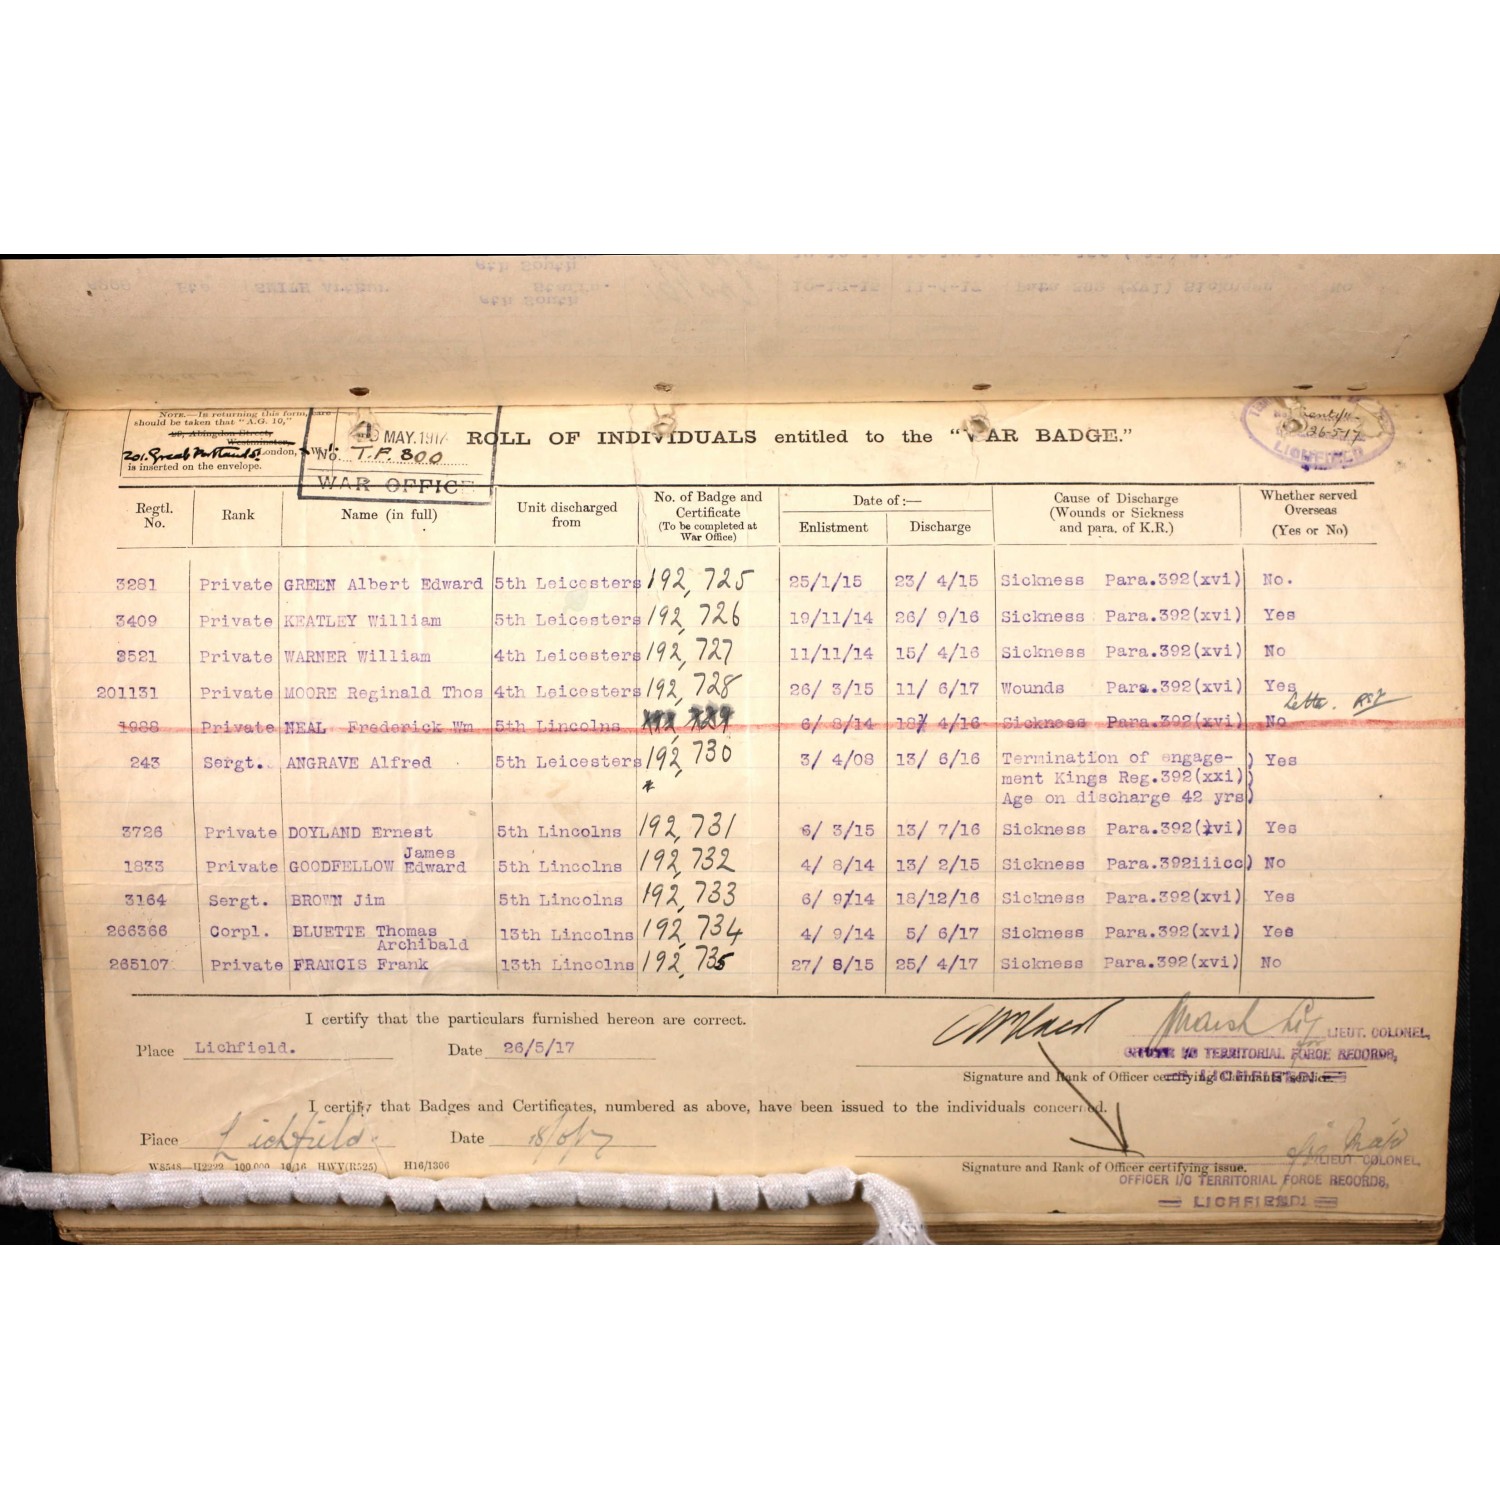 NOTE.—In returning this form, care
should be taken that "A.G. 10,"
Abingdon Street,
Westminster,
London,
is inserted on the envelope.
MAY. 1917
No. T.P. 800
WAR OFFICE
ROLL OF INDIVIDUALS entitled to the "WAR BADGE."
26-5-17
LICHFIELD
Regtl. No. Rank Name (in full) Unit discharged from No. of Badge and Certificate (To be completed at War Office) Date of :— Enlistment Discharge Cause of Discharge (Wounds or Sickness and para. of K.R.) Whether served Overseas (Yes or No)
3281 Private GREEN Albert Edward 5th Leicesters 192,725 25/1/15 23/ 4/15 Sickness Para.392(xvi) No.
3409 Private KEATLEY William 5th Leicesters 192,726 19/11/14 26/ 9/16 Sickness Para.392(xvi) Yes
3521 Private WARNER William 4th Leicesters 192,727 11/11/14 15/ 4/16 Sickness Para.392(xvi) No
201131 Private MOORE Reginald Thos 4th Leicesters 192,728 26/ 3/15 11/ 6/17 Wounds Para.392(xvi) Yes
1988 Private NEAL Frederick Wm 5th Lincolns 192,729 6/ 8/14 18/ 4/16 Sickness Para.392(xvi) No
243 Sergt. ANGRAVE Alfred 5th Leicesters 192,730 3/ 4/08 13/ 6/16 Termination of engage- ) Yes
ment Kings Reg.392(xxi)
Age on discharge 42 yrs)
3726 Private DOYLAND Ernest 5th Lincolns 192,731 6/ 3/15 13/ 7/16 Sickness Para.392(xvi) Yes
James
1833 Private GOODFELLOW Edward 5th Lincolns 192,732 4/ 8/14 13/ 2/15 Sickness Para.392iiicc) No
3164 Sergt. BROWN Jim 5th Lincolns 192,733 6/ 9/14 18/12/16 Sickness Para.392(xvi) Yes
266366 Corpl. BLUETTE Thomas 13th Lincolns 192,734 4/ 9/14 5/ 6/17 Sickness Para.392(xvi) Yes
Archibald
265107 Private FRANCIS Frank 13th Lincolns 192,735 27/ 8/15 25/ 4/17 Sickness Para.392(xvi) No
I certify that the particulars furnished hereon are correct.
Place Lichfield. Date 26/5/17
LIEUT. COLONEL,
OFFICER I/C TERRITORIAL FORCE RECORDS,
LICHFIELD
Signature and Rank of Officer certifying Claimants service.
I certify that Badges and Certificates, numbered as above, have been issued to the individuals concerned.
Place Lichfield Date
W8548—H2222 100,000 10/16 HWV(R525) H16/1306
Signature and Rank of Officer certifying issue.
LIEUT COLONEL,
OFFICER I/C TERRITORIAL FORCE RECORDS,
LICHFIELD